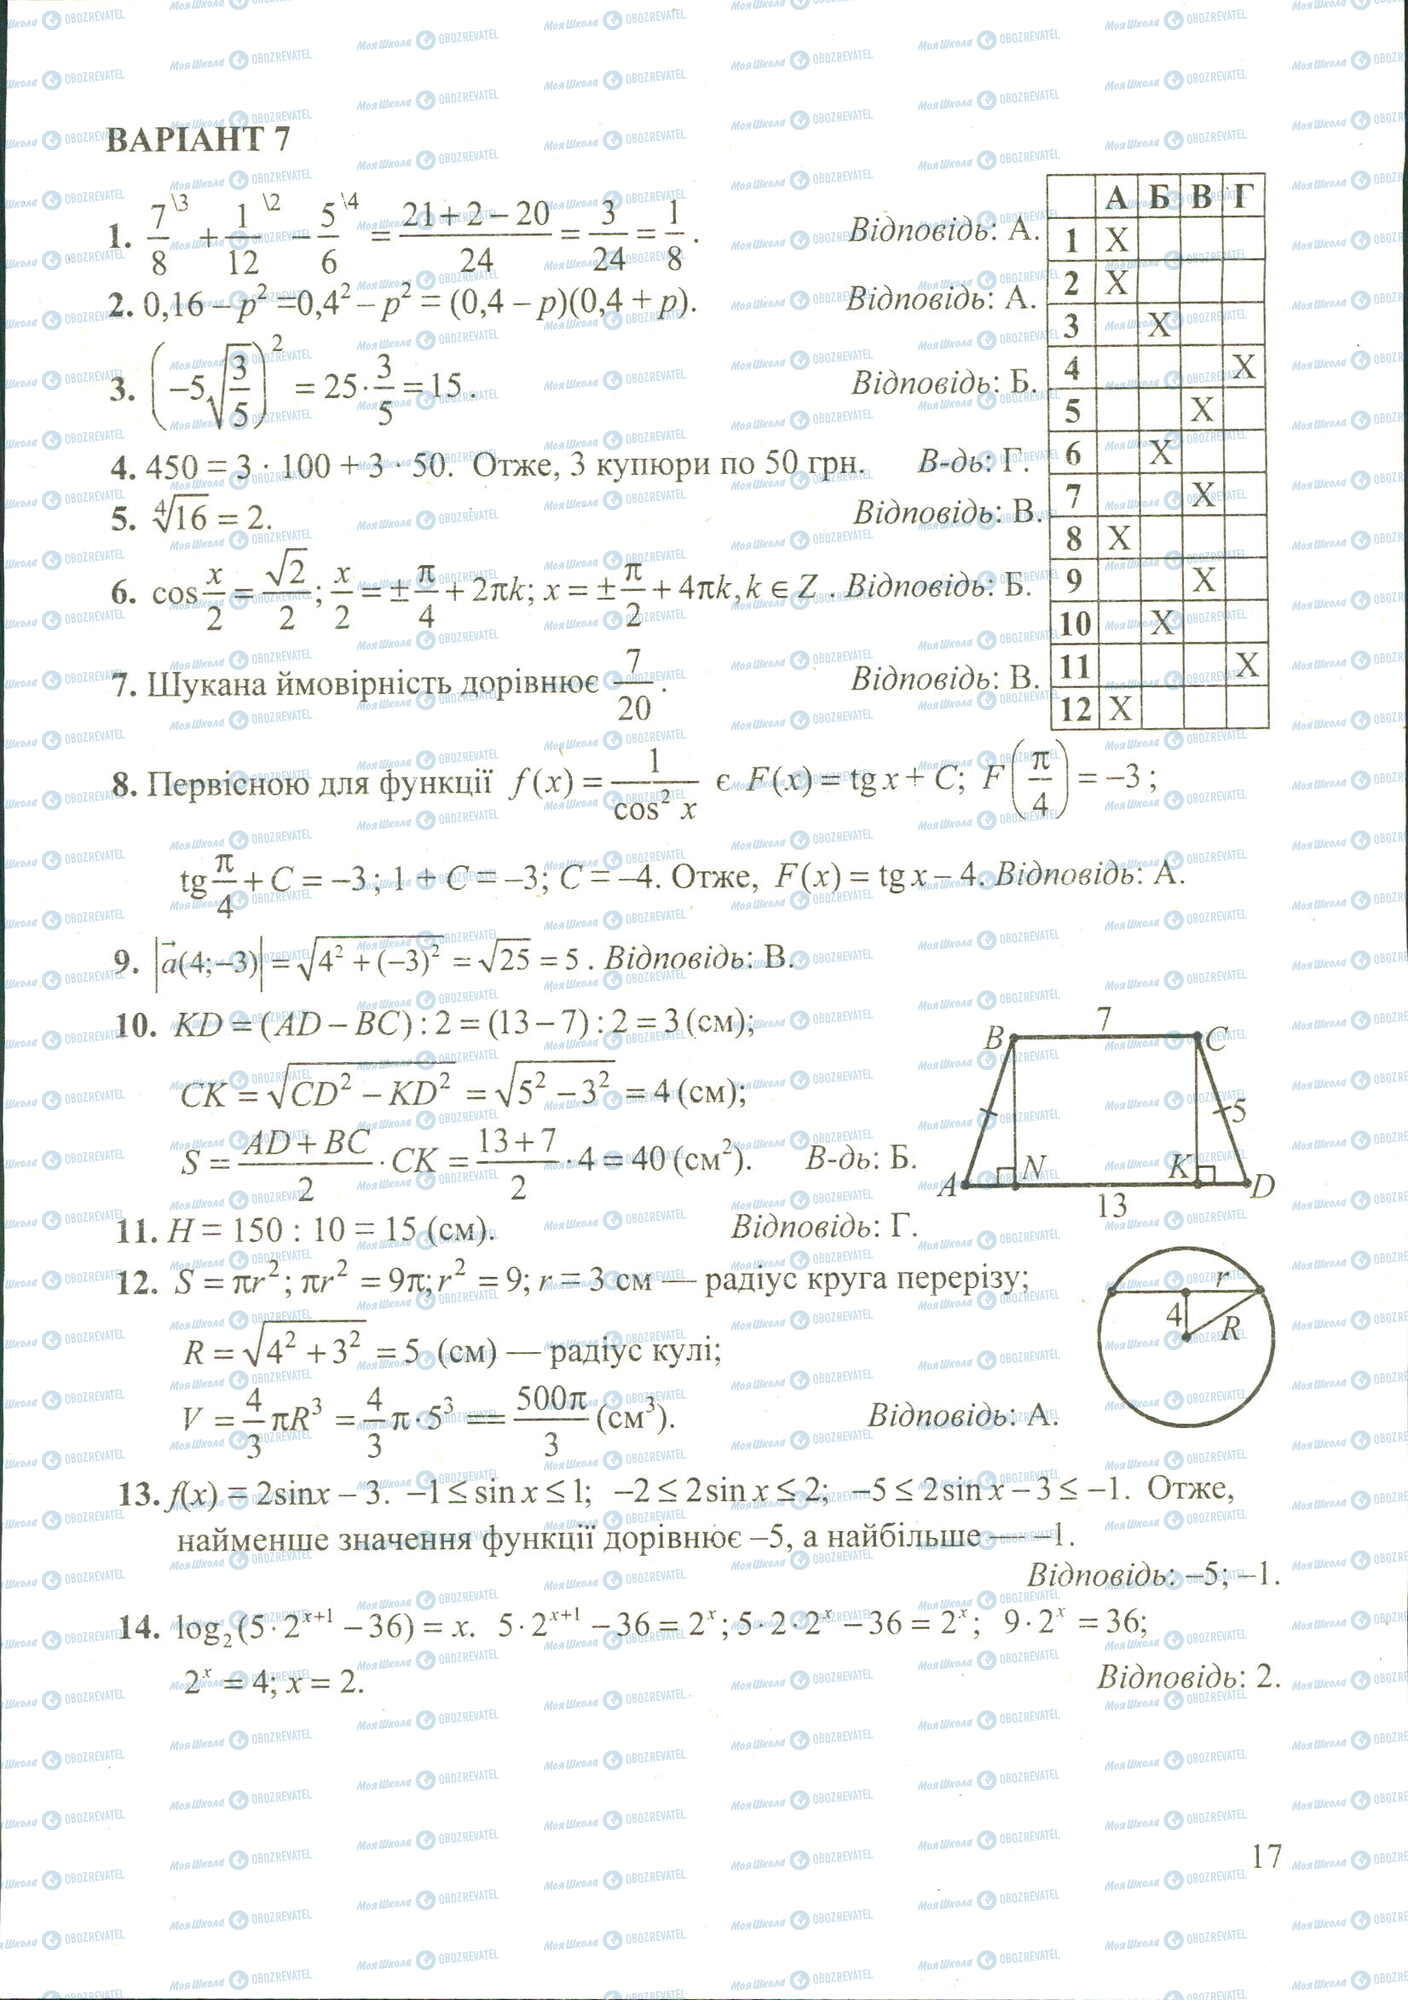 ВАРІАНТ 7
1. 7\3/8 + 1\2/12 − 5\4/6 = (21 + 2 − 20)/24 = 3/24 = 1/8. Відповідь: А.
2. 0,16 – p² =0,4² – p² = (0,4 – p)(0,4 + p). Відповідь: А.
3. (−5√(3/5))² = 25·3/5 = 15. Відповідь: Б.
4. 450 = 3 · 100 + 3 · 50. Отже, 3 купюри по 50 грн. В-дь: Г.
5. ⁴√16 = 2. Відповідь: В.
6. cos x/2 = √2/2; x/2 = ±π/4 + 2πk; x = ±π/2 + 4πk, k ∈ Z . Відповідь: Б.
7. Шукана ймовірність дорівнює 7/20. Відповідь: В.
А Б В Г
1 Х
2 Х
3 Х
4 Х
5 Х
6 Х
7 Х
8 Х
9 Х
10 Х
11 Х
12 Х
8. Первісною для функції f(x) = 1/cos² x є F(x) = tg x + C; F(π/4) = −3;
tg π/4 + C = −3; 1 + C = –3; C = –4. Отже, F(x) = tg x – 4. Відповідь: А.
9. |a⃗(4;−3)| = √(4² + (−3)²) = √25 = 5 . Відповідь: В.
10. KD = (AD − BC) : 2 = (13 − 7) : 2 = 3 (см);
CK = √(CD² − KD²) = √(5² − 3²) = 4 (см);
S = (AD + BC)/2 · CK = (13 + 7)/2 · 4 = 40 (см²). В-дь: Б.
B 7 C
5
A N K D
13
11. H = 150 : 10 = 15 (см). Відповідь: Г.
12. S = πr²; πr² = 9π; r² = 9; r = 3 см — радіус круга перерізу;
R = √(4² + 3²) = 5 (см) — радіус кулі;
V = 4/3 πR³ = 4/3 π · 5³ = 500π/3 (см³). Відповідь: А.
r
4 R
13. f(x) = 2sinx – 3. −1 ≤ sin x ≤ 1; −2 ≤ 2sin x ≤ 2; −5 ≤ 2sin x − 3 ≤ −1. Отже,
найменше значення функції дорівнює –5, а найбільше — –1.
Відповідь: –5; –1.
14. log₂(5·2ˣ⁺¹ − 36) = x. 5·2ˣ⁺¹ − 36 = 2ˣ; 5·2·2ˣ − 36 = 2ˣ; 9·2ˣ = 36;
2ˣ = 4; x = 2. Відповідь: 2.
17
МояШкола OBOZREVATEL